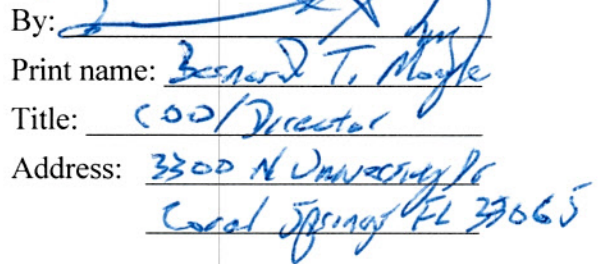 By:
Print name: Bernard T. Moyle
Title: COO/Director
Address: 3300 N University Dr
Coral Springs FL 33065